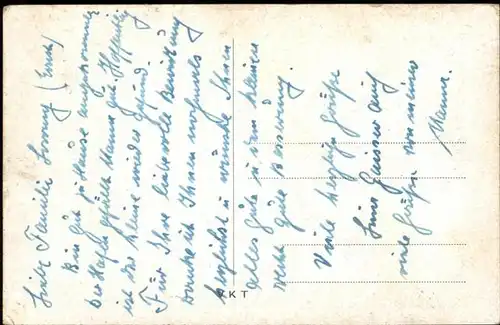 Liebe Familie Sommy (Ernst)
Bin gut zu Hause angekommen
Der Hafen gefällt Mama gut. Hoffentlich
ist der kleine wieder gesund.
Für Ihre liebevolle Bewirtung
danke ich Ihnen nochmals
herzlichst u wünsche Ihnen
alles gute u dem kleinen
recht gute Besserung.
Viele herzliche Grüße
viele Grüße von meiner
Mama.
KKT